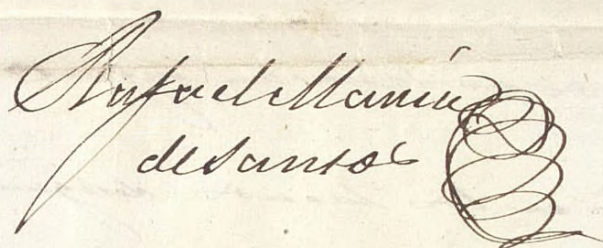 Rafael Maria
de Santos